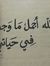 لله أجمل ما وجد
في حياتي